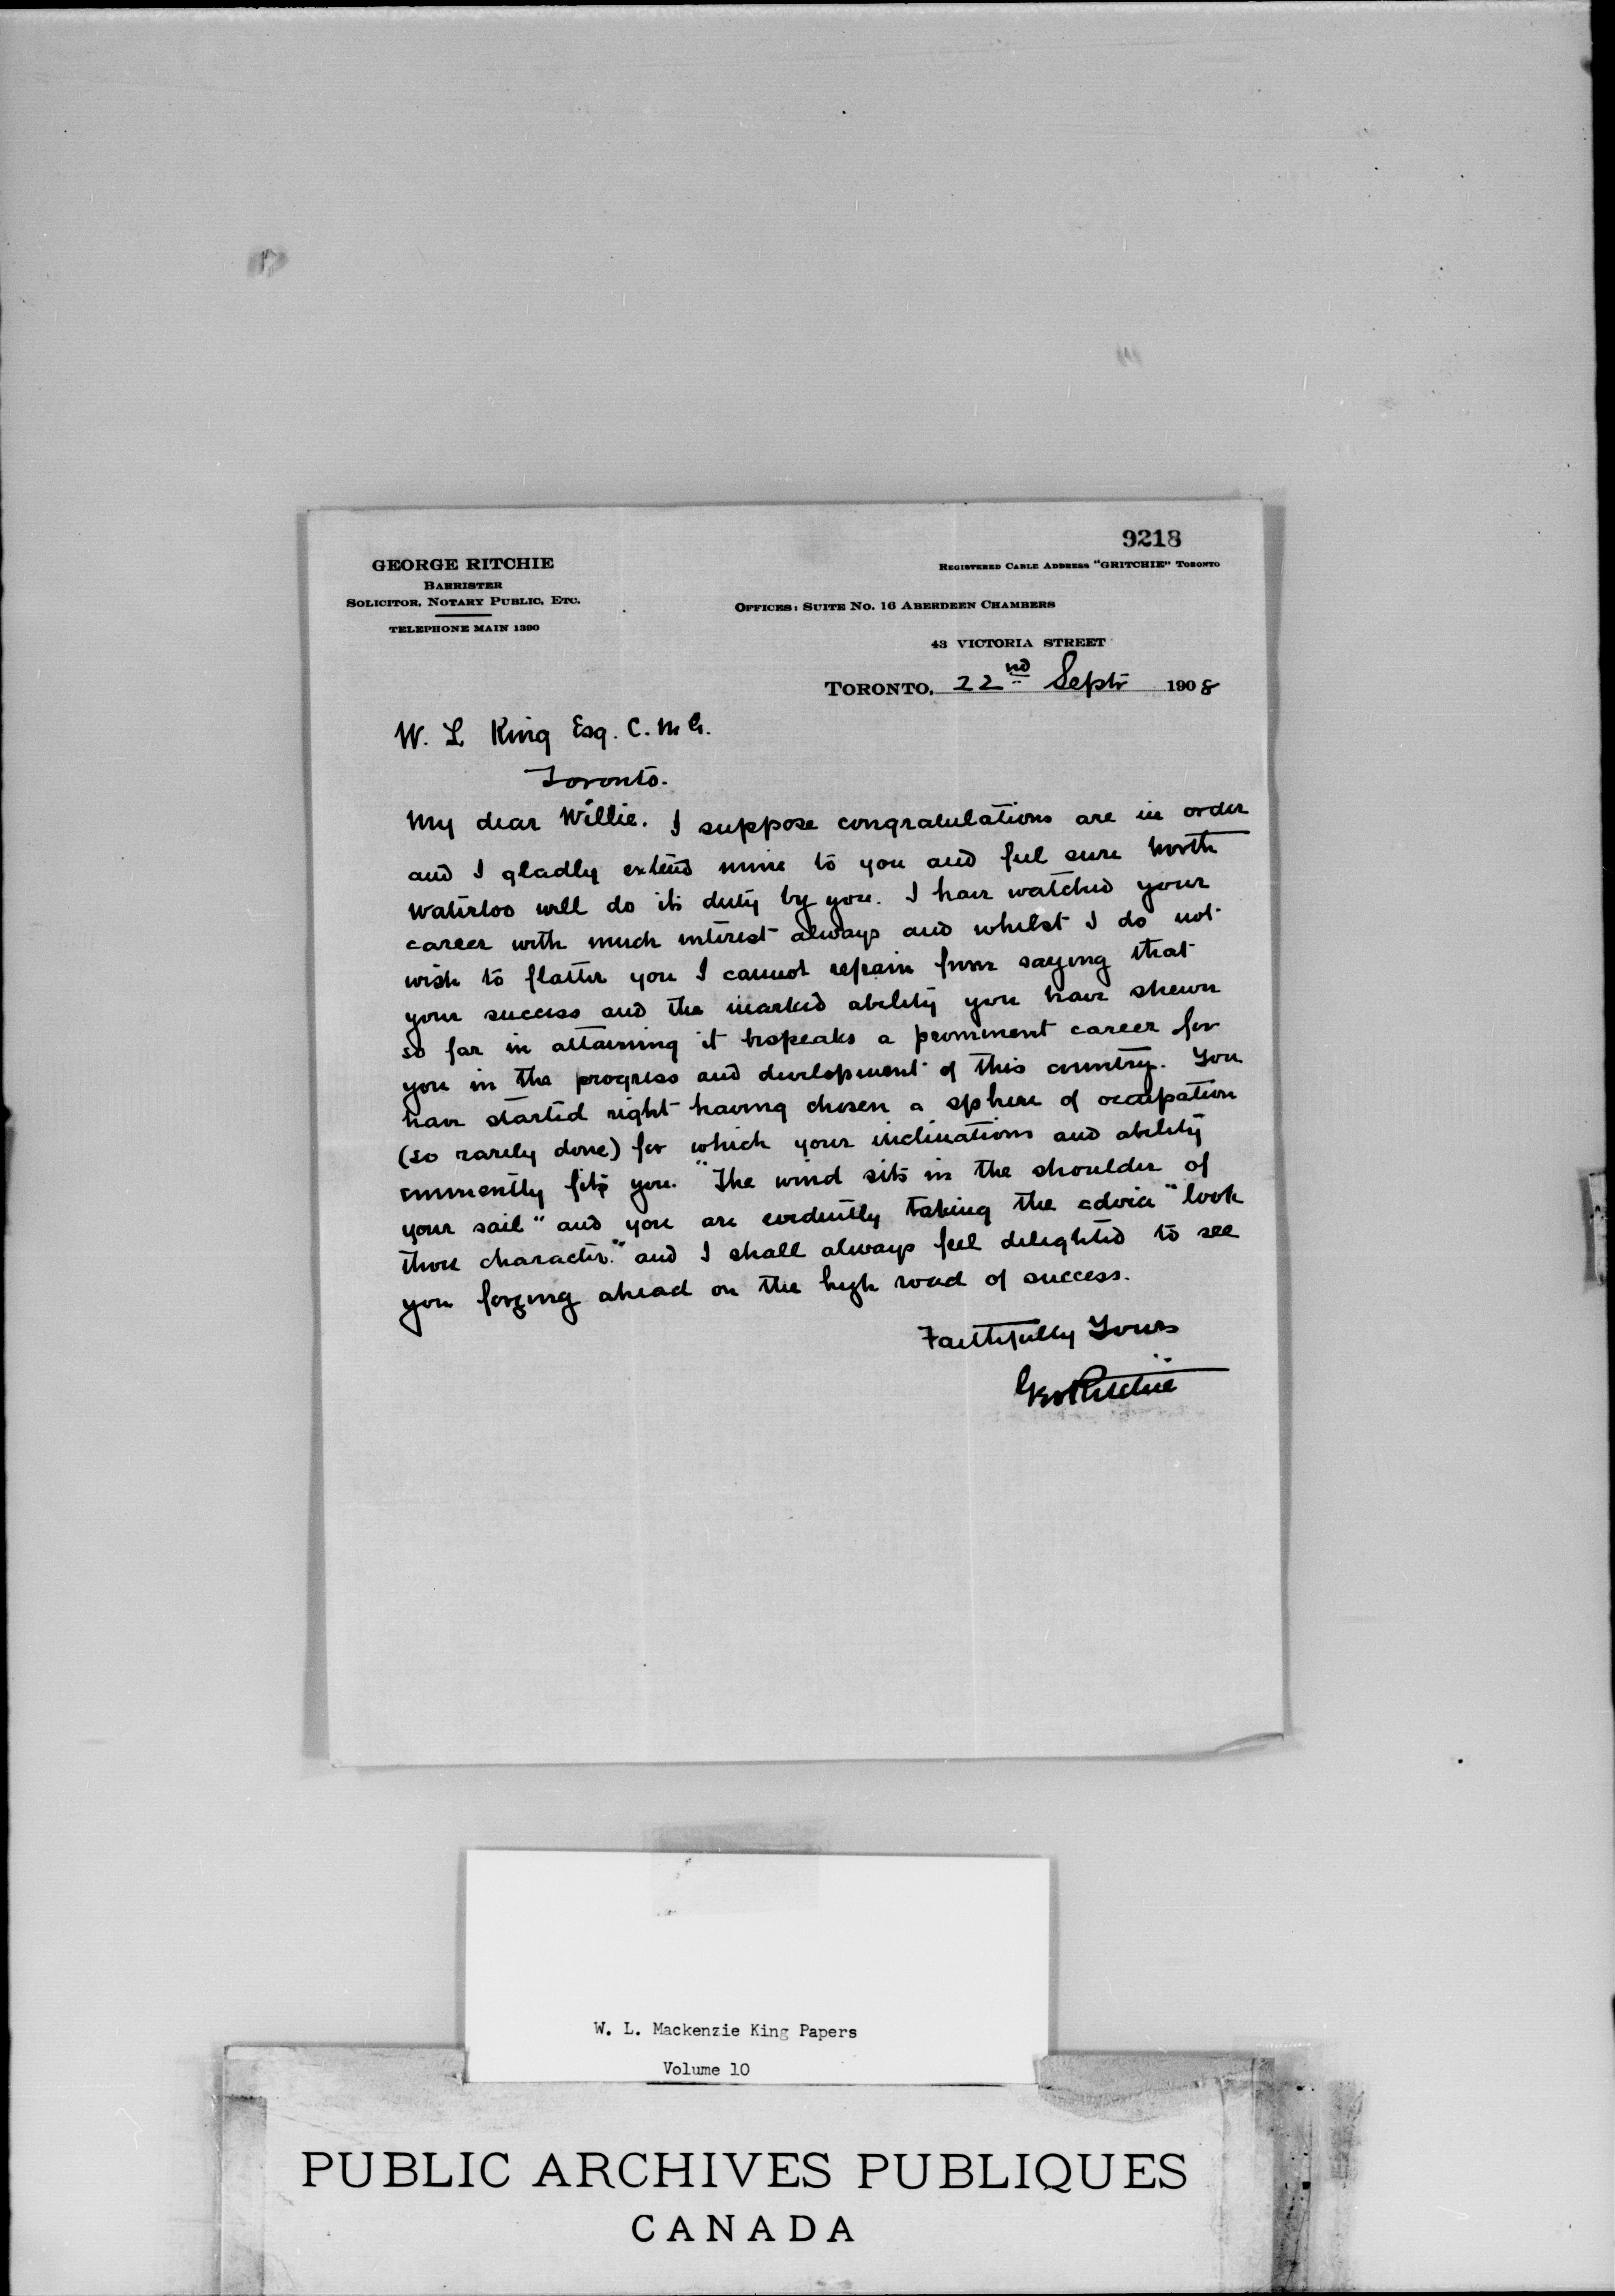 9218
GEORGE RITCHIE
BARRISTER
SOLICITOR, NOTARY PUBLIC, ETC.
TELEPHONE MAIN 1390
REGISTERED CABLE ADDRESS "GRITCHIE" TORONTO
OFFICES: SUITE NO. 16 ABERDEEN CHAMBERS
43 VICTORIA STREET
TORONTO, 22nd Sept 1908
W. L King Esq. C.M.G.
Toronto.
My dear Willie. I suppose congratulations are in order
and I gladly extend mine to you and feel sure North
Waterloo will do its duty by you. I have watched your
career with much interest always and whilst I do not
wish to flatter you I cannot refrain from saying that
your success and the marked ability you have shewn
so far in attaining it bespeaks a prominent career for
you in the progress and development of this country. You
have started right having chosen a sphere of occupation
(so rarely done) for which your inclinations and ability
eminently fits you. "The wind sits in the shoulder of
your sail" and you are evidently taking the advice "look
thou character." and I shall always feel delighted to see
you forging ahead on the high road of success.
Faithfully Yours
Geo Ritchie
W. L. Mackenzie King Papers
Volume 10
PUBLIC ARCHIVES PUBLIQUES
CANADA